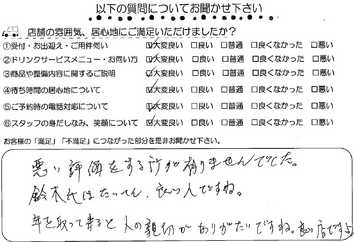 以下の質問についてお聞かせ下さい
店舗の雰囲気、居心地にご満足いただけましたか?
①受付・お出迎え・ご用件伺い ☑大変良い □良い □普通 □良くなかった □悪い
②ドリンクサービスメニュー・お伺い方 ☑大変良い □良い □普通 □良くなかった □悪い
③商品や整備内容に関するご説明 ☑大変良い □良い □普通 □良くなかった □悪い
④待ち時間の居心地について ☑大変良い □良い □普通 □良くなかった □悪い
⑤ご予約時の電話対応について ☑大変良い □良い □普通 □良くなかった □悪い
⑥スタッフの身だしなみ、笑顔について ☑大変良い □良い □普通 □良くなかった □悪い
お客様の「満足」「不満足」につながった部分を是非お聞かせ下さい。
悪い評価をする所が有りませんでした。
鈴木氏はたいへん良い人ですね。
年を取って来ると人の親切がありがたいですね。良い店ですよ